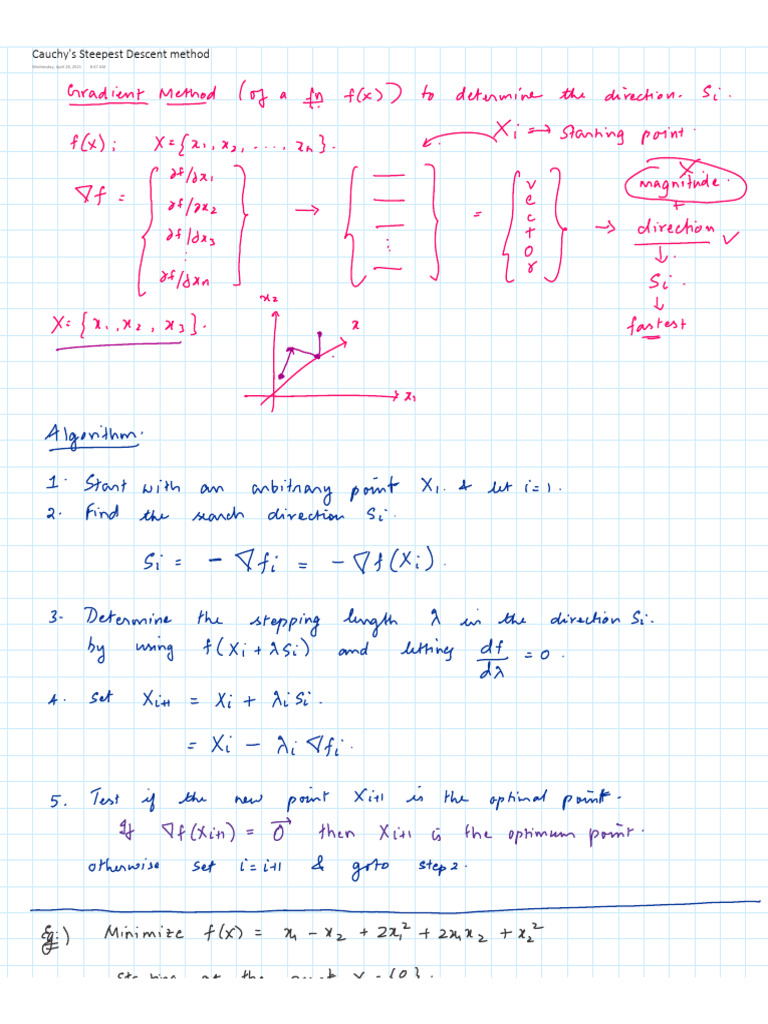 Cauchy's Steepest Descent method
Wednesday, April 28, 2021 8:47 AM
Gradient Method (of a fn f(x)) to determine the direction. Si.
f(x); X = {x1, x2, ...., xn}. Xi → Starting point.
∇f = { ∂f/∂x1 ∂f/∂x2 ∂f/∂x3 ⋮ ∂f/∂xn } → { — — — ⋮ — } = { v e c t o r } → magnitude. X
+
direction ✓
↓
Si.
↓
fastest
X = {x1, x2, x3}.
x2
x
x1
Algorithm.
1. Start with an arbitrary point X1. & let i=1.
2. Find the search direction Si.
Si = - ∇fi = - ∇f(Xi).
3. Determine the stepping length λ in the direction Si.
by using f(Xi + λSi) and letting df/dλ = 0.
4. Set Xi+1 = Xi + λi Si.
= Xi - λi ∇fi.
5. Test if the new point Xi+1 is the optimal point.
If ∇f(Xi+1) = 0⃗ then Xi+1 is the optimum point.
otherwise set i = i+1 & goto step 2.
Eg:) Minimize f(x) = x1 - x2 + 2x1² + 2x1x2 + x2²